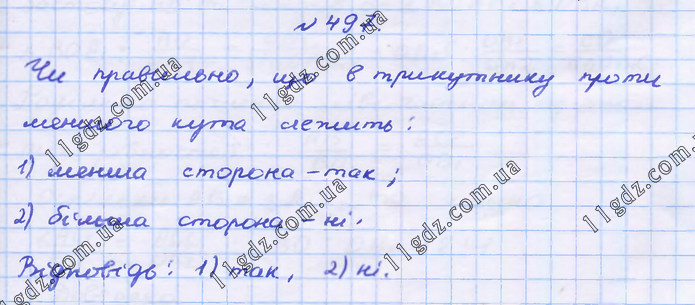 № 497
Чи правильно, що в трикутнику проти
меншого кута лежить:
1) менша сторона - так;
2) більша сторона - ні.
Відповідь: 1) так, 2) ні.
11gdz.com.ua
11gdz.com.ua
11gdz.com.ua
11gdz.com.ua
11gdz.com.ua
11gdz.com.ua